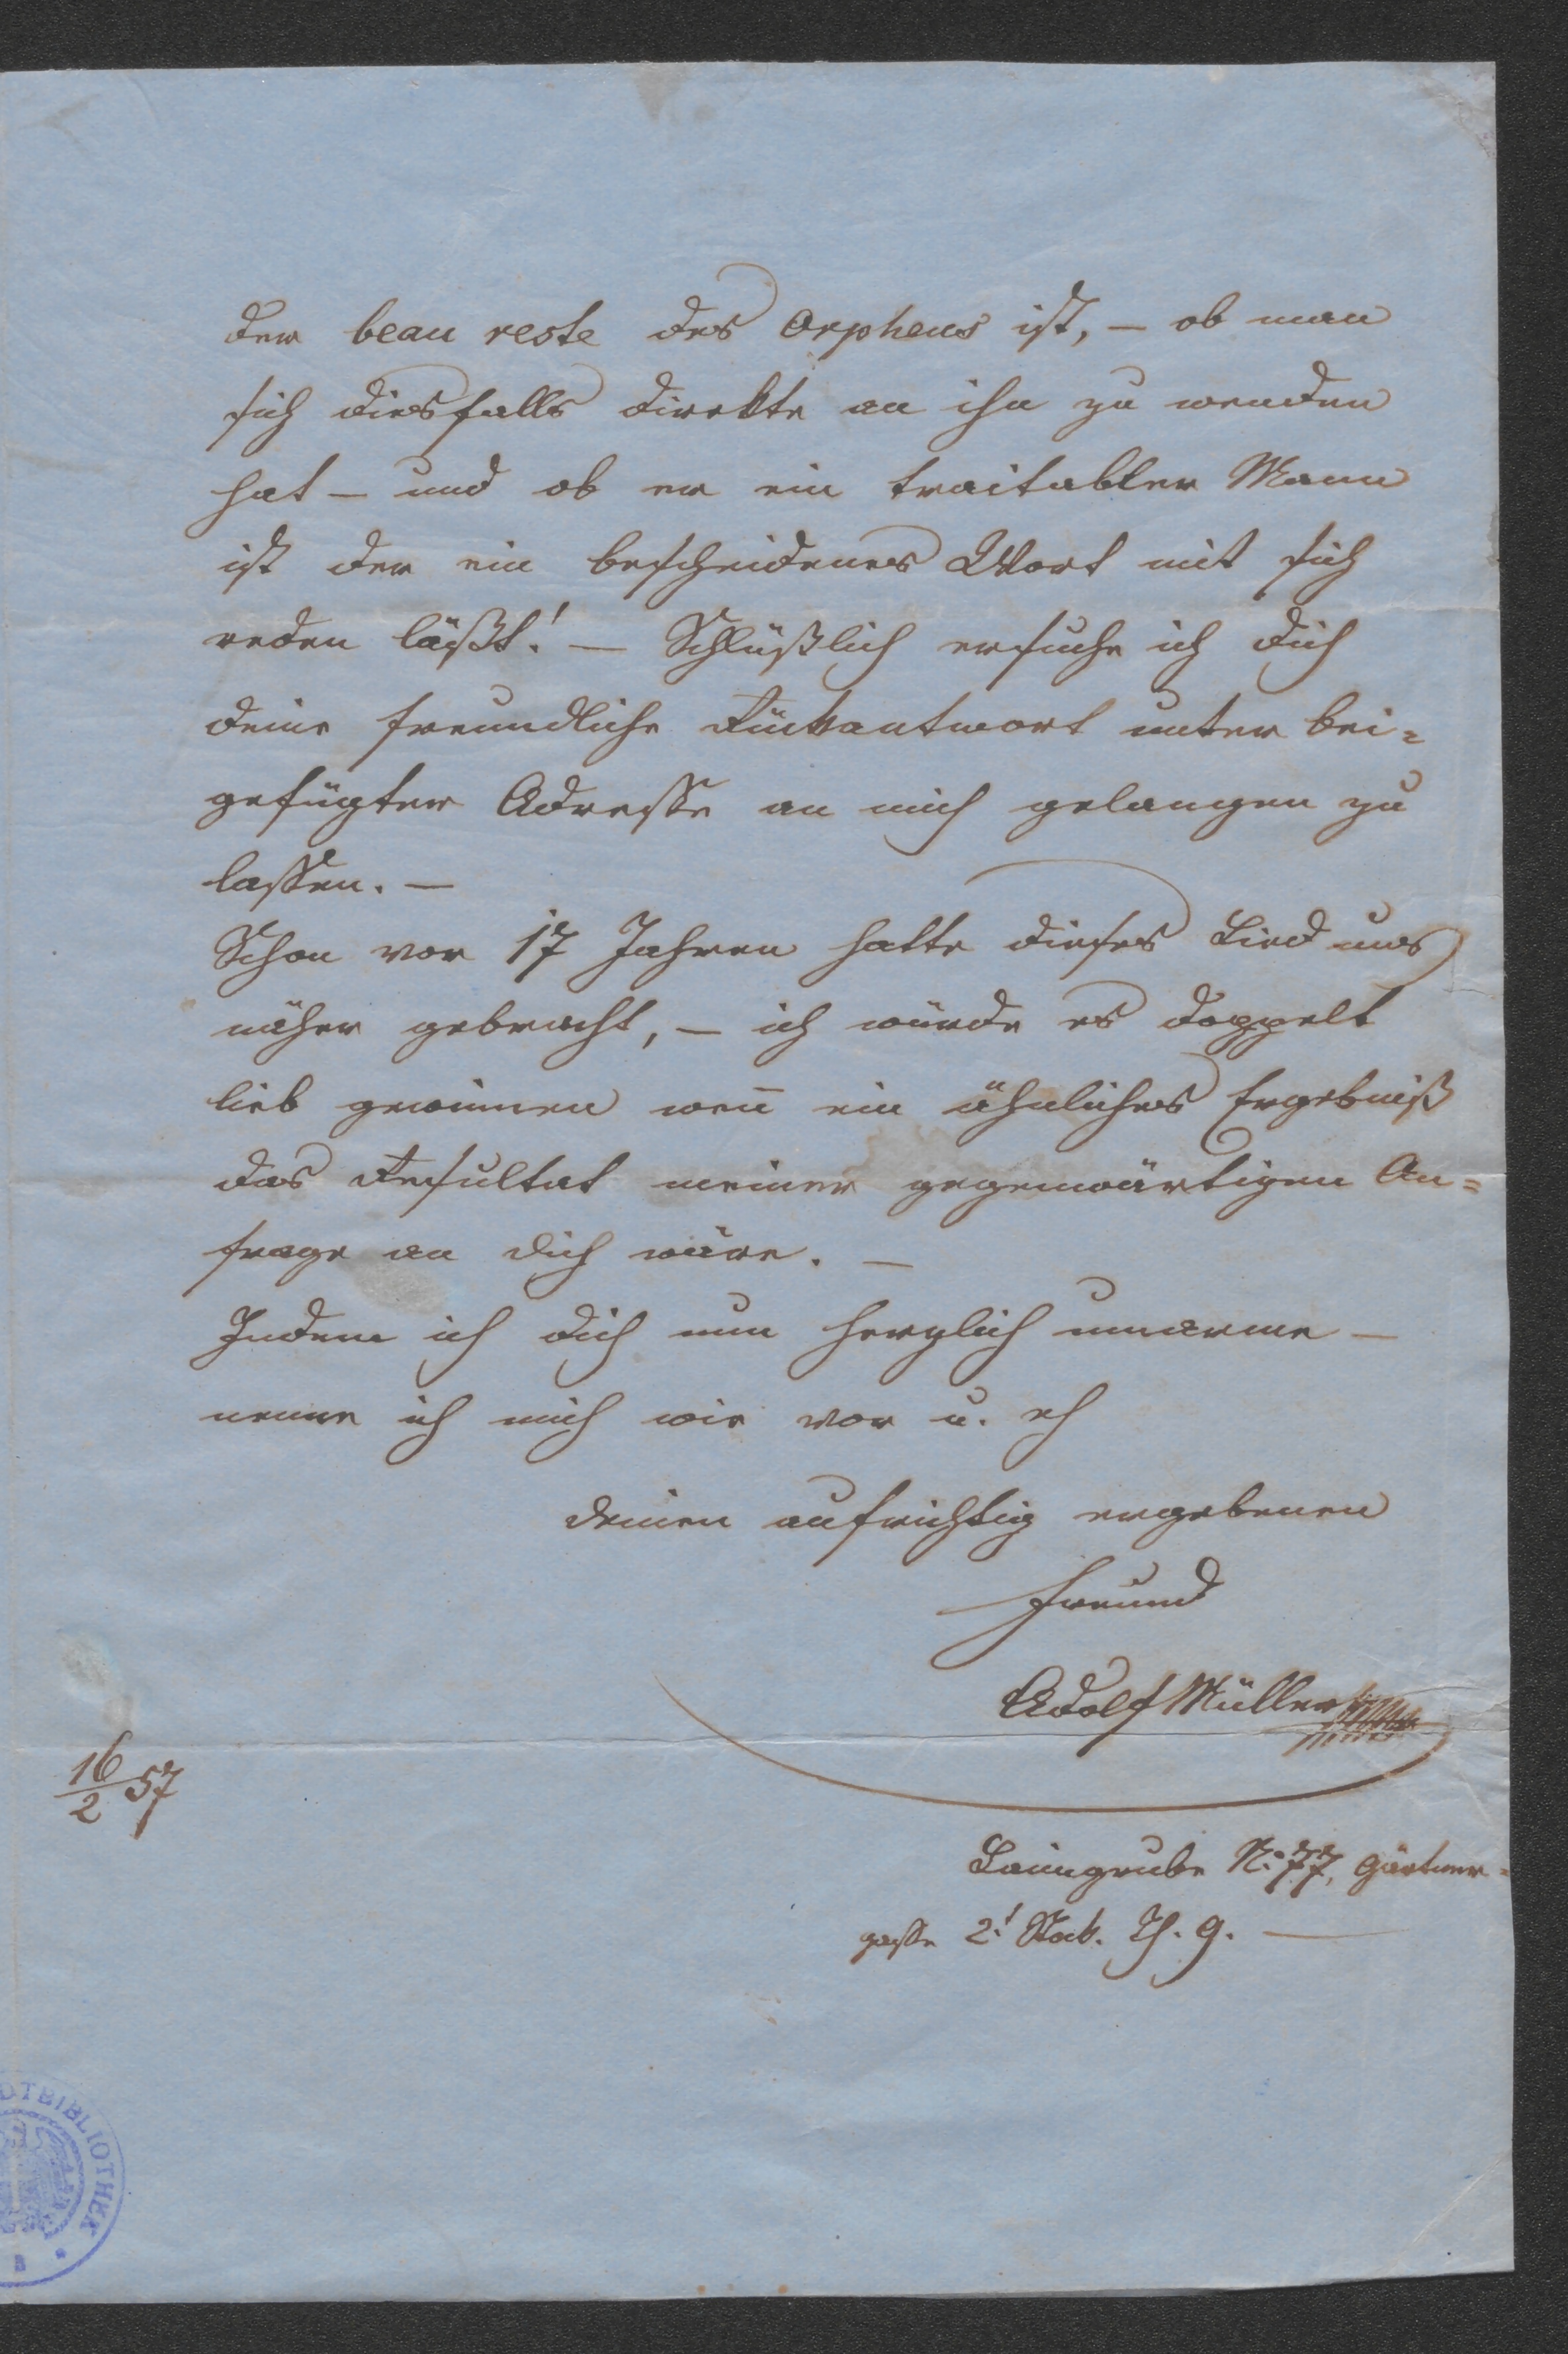 der beau reste des Orpheus ist, – ob man
sich diesfalls direkte an ihn zu wenden
hat – und ob er ein traitabler Mann
ist der ein bescheidenes Wort mit sich
reden läßt! – Schlüßlich ersuche ich dich
deine freundliche Rückantwort unter bei=
gefügter Adresse an mich gelangen zu
lassen. –
Schon vor 17 Jahren hatte dieses Lied uns
näher gebracht, – ich würde es doppelt
lieb gewinnen wen̄ ein ähnliches Ergebniß
das Resultat meiner gegenwärtigen An=
frage an dich wäre. –
Indem ich dich nun herzlich umarme –
nenne ich mich wie vor u. eh
deinen aufrichtig ergebenen
Freund
Adolf Müller
16/2 57
Laimgrube N: 77, Gärtner=
gasse 2! Stock. Th. 9. –
DTBIBLIOTHEK